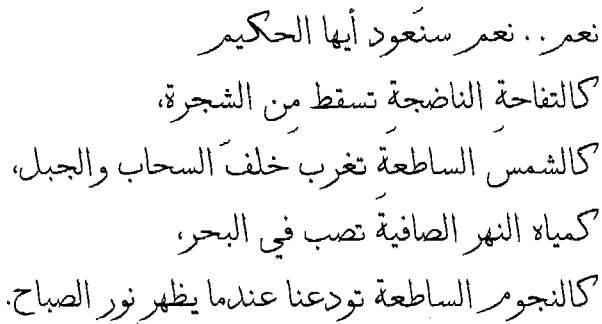 نعم.. نعم سنَعود أيها الحكيم
كالتفاحة الناضجة تسقط من الشجرة،
كالشمسَ الساطعةَ تغربَ خلفَ السحاب والجبل،
كمياه النهر الصافيةَ تصب في البحر،
كالنجوم الساطعة تودعنا عندما يظهر نور الصباح.